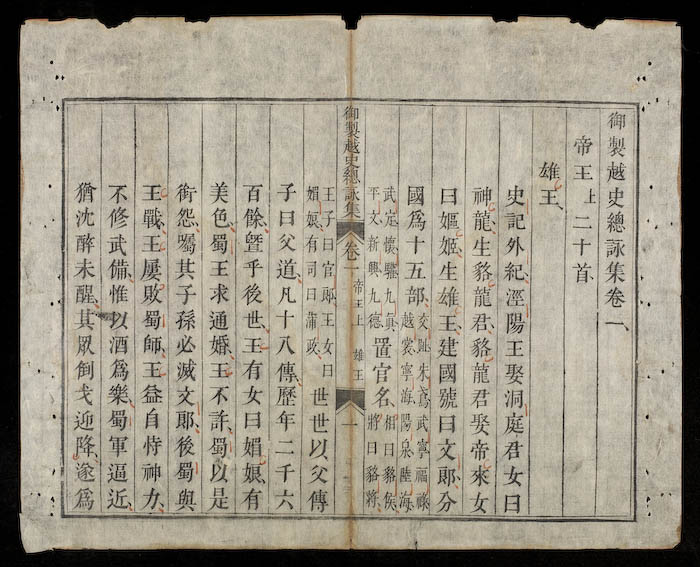 御製越史總詠集卷一
帝王上 二十首
雄王
史記外紀涇陽王娶洞庭君女曰
神龍生貉龍君貉龍君娶帝來女
曰嫗姬生雄王建國號曰文郎分
國爲十五部 交趾朱鳶武寧福祿 越裳寧海陽泉陸海
武定懷驩九眞 平文新興九德 置官名 相曰貉侯 將曰貉將
御製越史總詠集 卷一 帝王上 雄王 一
王子曰官郎王女曰 媚娘有司曰蒲政 世世以父傳
子曰父道凡十八傳歷年二千六
百餘曁乎後世王有女曰媚娘有
美色蜀王求通婚王不許蜀以是
銜怨囑其子孫必滅文郎後蜀與
王戰王屢敗蜀師王益自恃神力
不修武備惟以酒爲樂蜀軍逼近
猶沈醉未醒其眾倒戈迎降遂爲